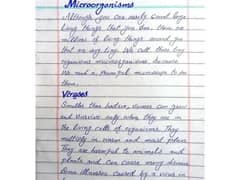 Microorganisms
Although you can easily count large
living things that you see, there are
millions of living things around you
that no any big. We call these tiny
organisms microorganisms because
We need a powerful microscope to see
them.
Viruses
Smaller than bacteria, viruses can grow
and survive only when they are in
the living cells of organisms. They
multiply in warm and moist places
They are harmful to animals and
plants and can cause many disease
Some illnesses caused by a virus in